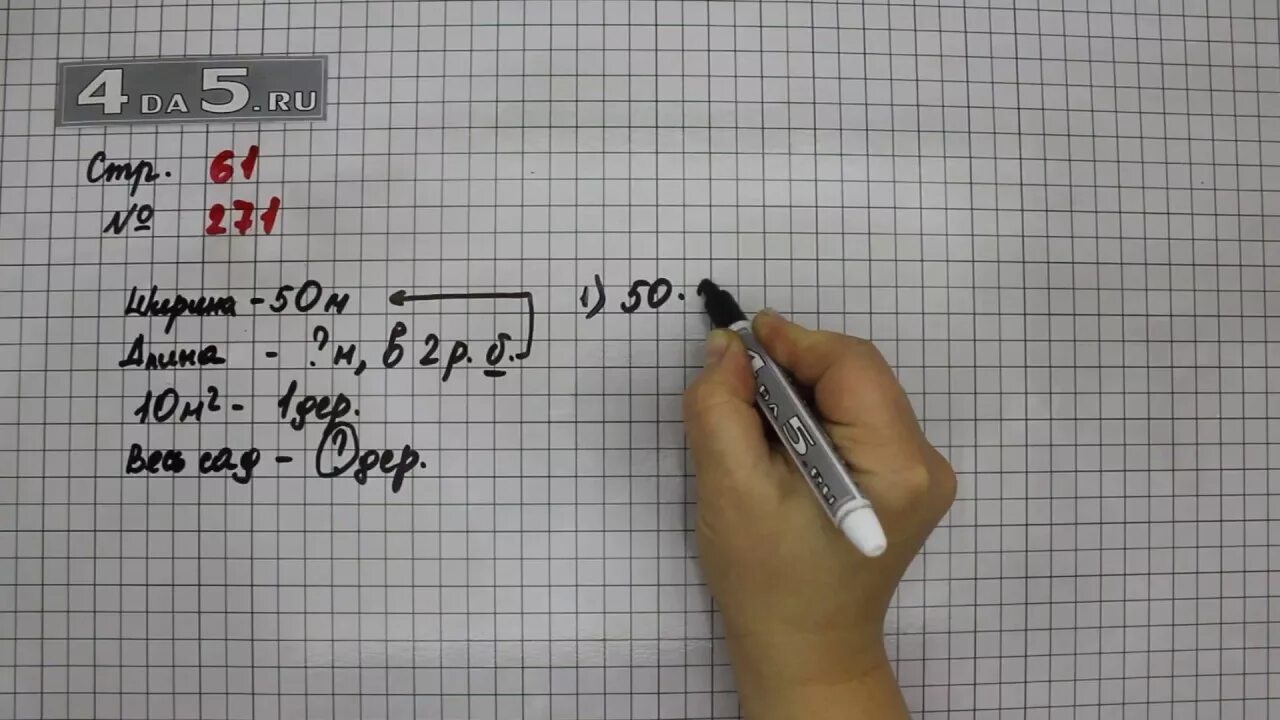 4 DA 5.RU
Стр. 61
№ 271
Ширина - 50 м
Длина - ? м, в 2 р. б.
10 м² - 1 дер.
Весь сад - ? дер.
1) 50 ·
4 DA 5.RU